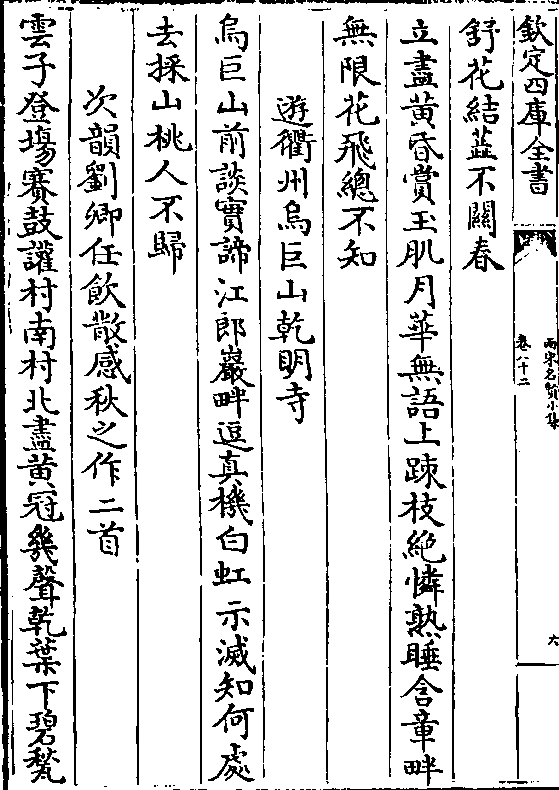 欽定四庫全書
兩宋名賢小集
卷八十二
六
舒花結蘂不關春
立盡黄昏賞玉肌月華無語上疎枝絶憐熟睡含章畔
無限花飛總不知
遊衢州烏巨山乾明寺
烏巨山前談實諦江郎巖畔逗真機白虹示滅知何處
去採山桃人不歸
次韻劉卿任飲散感秋之作二首
雲子登塲賽鼓讙村南村北盡黄冠幾聲乾葉下碧甃